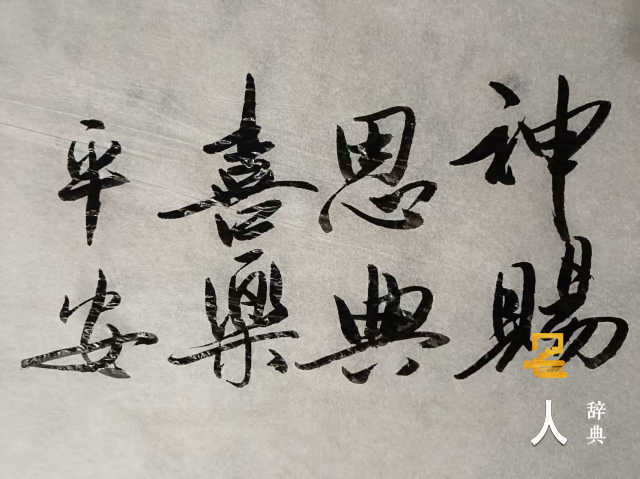 神賜
恩典
喜樂
平安
人
辞典